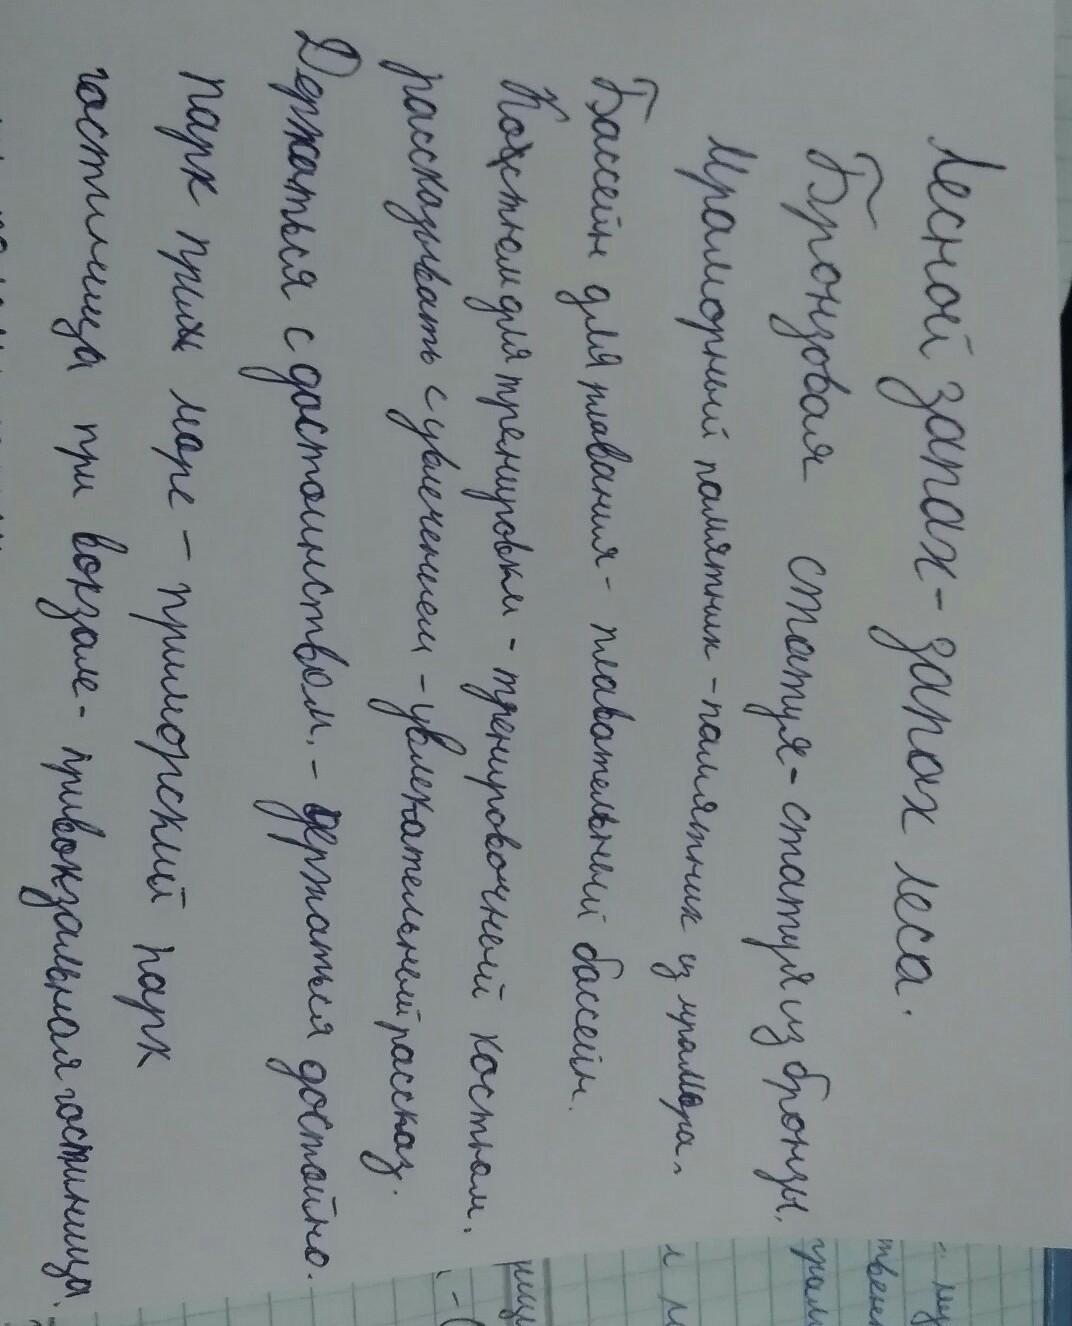 Лесной запах - запах леса.
Бронзовая статуя - статуя из бронзы.
Мраморный памятник - памятник из мрамора.
Бассейн для плавания - плавательный бассейн.
Костюм для тренировки - тренировочный костюм.
рассказывать с увлечением - увлекательный рассказ.
Держаться с достоинством, - держаться достойно.
парк при море - приморский парк
гостиница при вокзале - привокзальная гостиница.